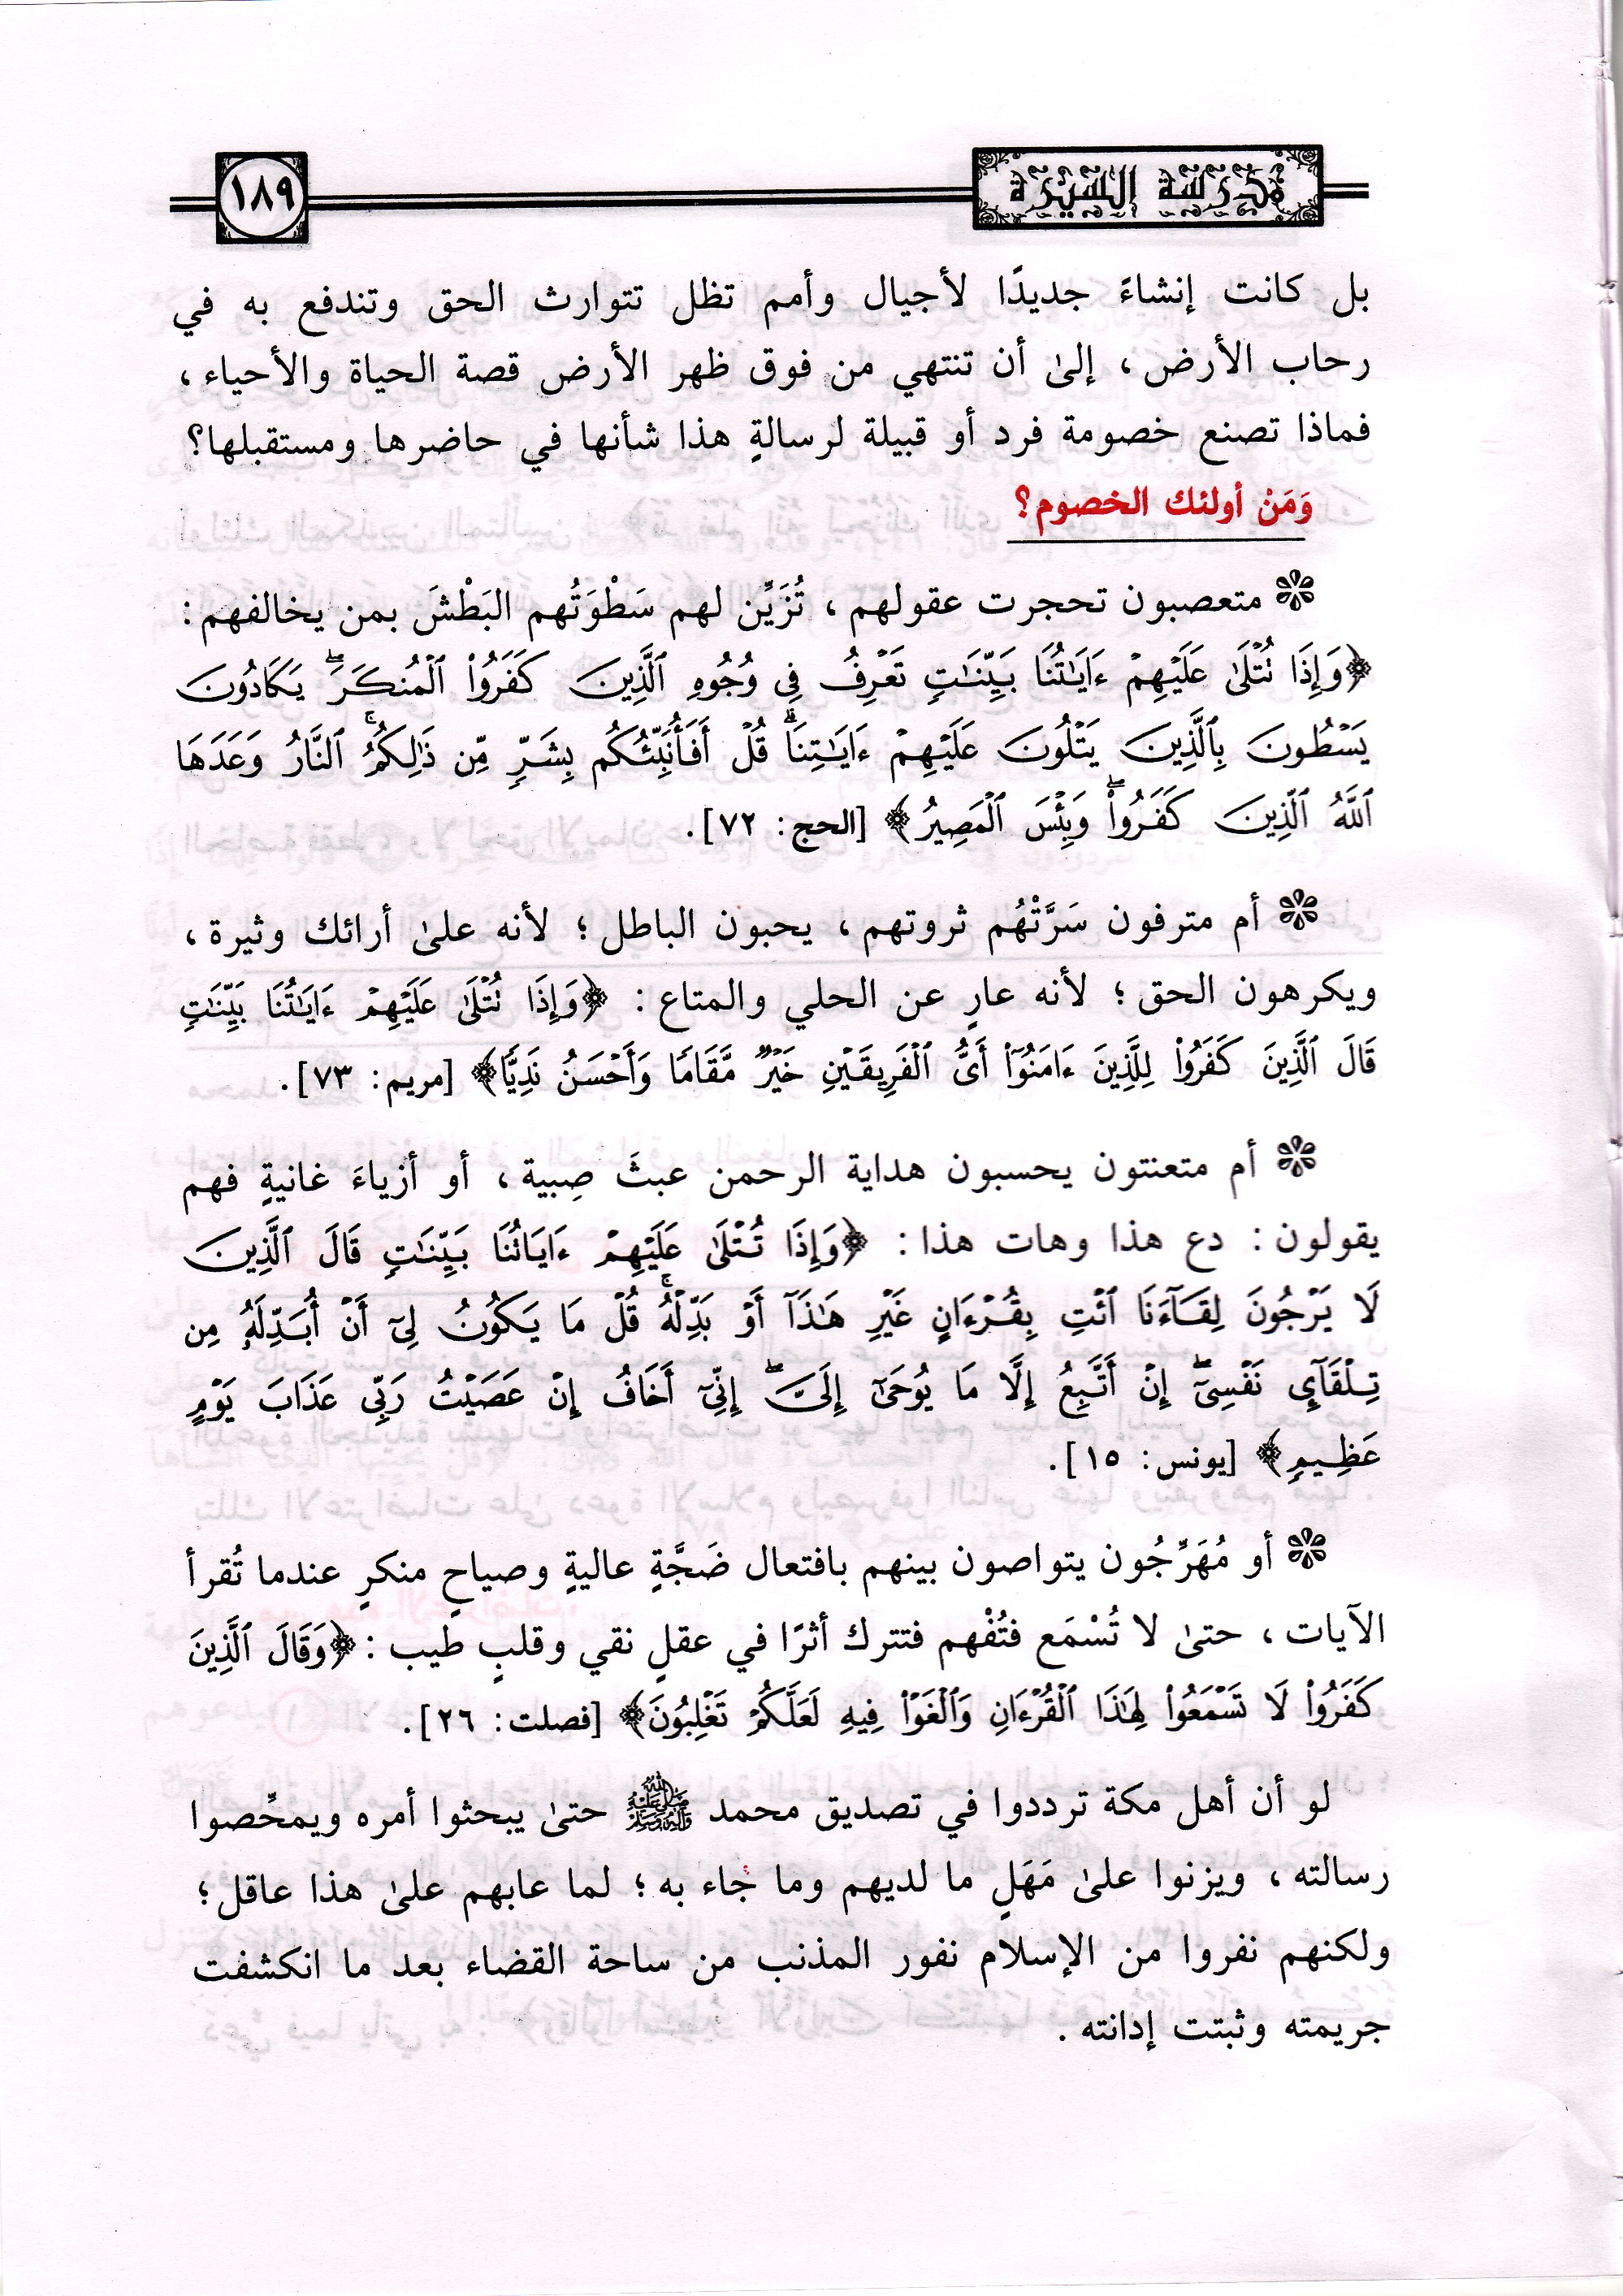 مدرسة السيرة
١٨٩
بل كانت إنشاءً جديدًا لأجيال وأمم تظل تتوارث الحق وتندفع به في
رحاب الأرض، إلىٰ أن تنتهي من فوق ظهر الأرض قصة الحياة والأحياء،
فماذا تصنع خصومة فرد أو قبيلة لرسالةٍ هذا شأنها في حاضرها ومستقبلها؟
وَمَنْ أولئك الخصوم؟
متعصبون تحجرت عقولهم، تُزَيِّن لهم سَطْوَتُهم البَطْشَ بمن يخالفهم:
﴿وَإِذَا تُتْلَىٰ عَلَيْهِمْ ءَايَٰتُنَا بَيِّنَٰتٍ تَعْرِفُ فِى وُجُوهِ ٱلَّذِينَ كَفَرُوا۟ ٱلْمُنكَرَ ۖ يَكَادُونَ
يَسْطُونَ بِٱلَّذِينَ يَتْلُونَ عَلَيْهِمْ ءَايَٰتِنَا ۗ قُلْ أَفَأُنَبِّئُكُم بِشَرٍّ مِّن ذَٰلِكُمُ ۚ ٱلنَّارُ وَعَدَهَا
ٱللَّهُ ٱلَّذِينَ كَفَرُوا۟ ۖ وَبِئْسَ ٱلْمَصِيرُ﴾ [الحج: ٧٢].
أم مترفون سَرَّتْهُم ثروتهم، يحبون الباطل؛ لأنه علىٰ أرائك وثيرة،
ويكرهون الحق؛ لأنه عارٍ عن الحلي والمتاع: ﴿وَإِذَا تُتْلَىٰ عَلَيْهِمْ ءَايَٰتُنَا بَيِّنَٰتٍ
قَالَ ٱلَّذِينَ كَفَرُوا۟ لِلَّذِينَ ءَامَنُوٓا۟ أَىُّ ٱلْفَرِيقَيْنِ خَيْرٌ مَّقَامًا وَأَحْسَنُ نَدِيًّا﴾ [مريم: ٧٣].
أم متعنتون يحسبون هداية الرحمن عبثَ صِبية، أو أزياءَ غانيةٍ فهم
يقولون: دع هذا وهات هذا: ﴿وَإِذَا تُتْلَىٰ عَلَيْهِمْ ءَايَاتُنَا بَيِّنَٰتٍ قَالَ ٱلَّذِينَ
لَا يَرْجُونَ لِقَآءَنَا ٱئْتِ بِقُرْءَانٍ غَيْرِ هَٰذَآ أَوْ بَدِّلْهُ ۚ قُلْ مَا يَكُونُ لِىٓ أَنْ أُبَدِّلَهُۥ مِن
تِلْقَآئِ نَفْسِىٓ ۖ إِنْ أَتَّبِعُ إِلَّا مَا يُوحَىٰٓ إِلَىَّ ۖ إِنِّىٓ أَخَافُ إِنْ عَصَيْتُ رَبِّى عَذَابَ يَوْمٍ
عَظِيمٍ﴾ [يونس: ١٥].
أو مُهَرِّجُون يتواصون بينهم بافتعال ضَجَّةٍ عاليةٍ وصياحٍ منكرٍ عندما تُقرأ
الآيات، حتىٰ لا تُسْمَع فتُفْهم فتترك أثرًا في عقلٍ نقي وقلبٍ طيب: ﴿وَقَالَ ٱلَّذِينَ
كَفَرُوا۟ لَا تَسْمَعُوا۟ لِهَٰذَا ٱلْقُرْءَانِ وَٱلْغَوْا۟ فِيهِ لَعَلَّكُمْ تَغْلِبُونَ﴾ [فصلت: ٢٦].
لو أن أهل مكة ترددوا في تصديق محمد ﷺ حتىٰ يبحثوا أمره ويمحِّصوا
رسالته، ويزنوا علىٰ مَهَلٍ ما لديهم وما جاء به؛ لما عابهم علىٰ هذا عاقل؛
ولكنهم نفروا من الإسلام نفور المذنب من ساحة القضاء بعد ما انكشفت
جريمته وثبتت إدانته.